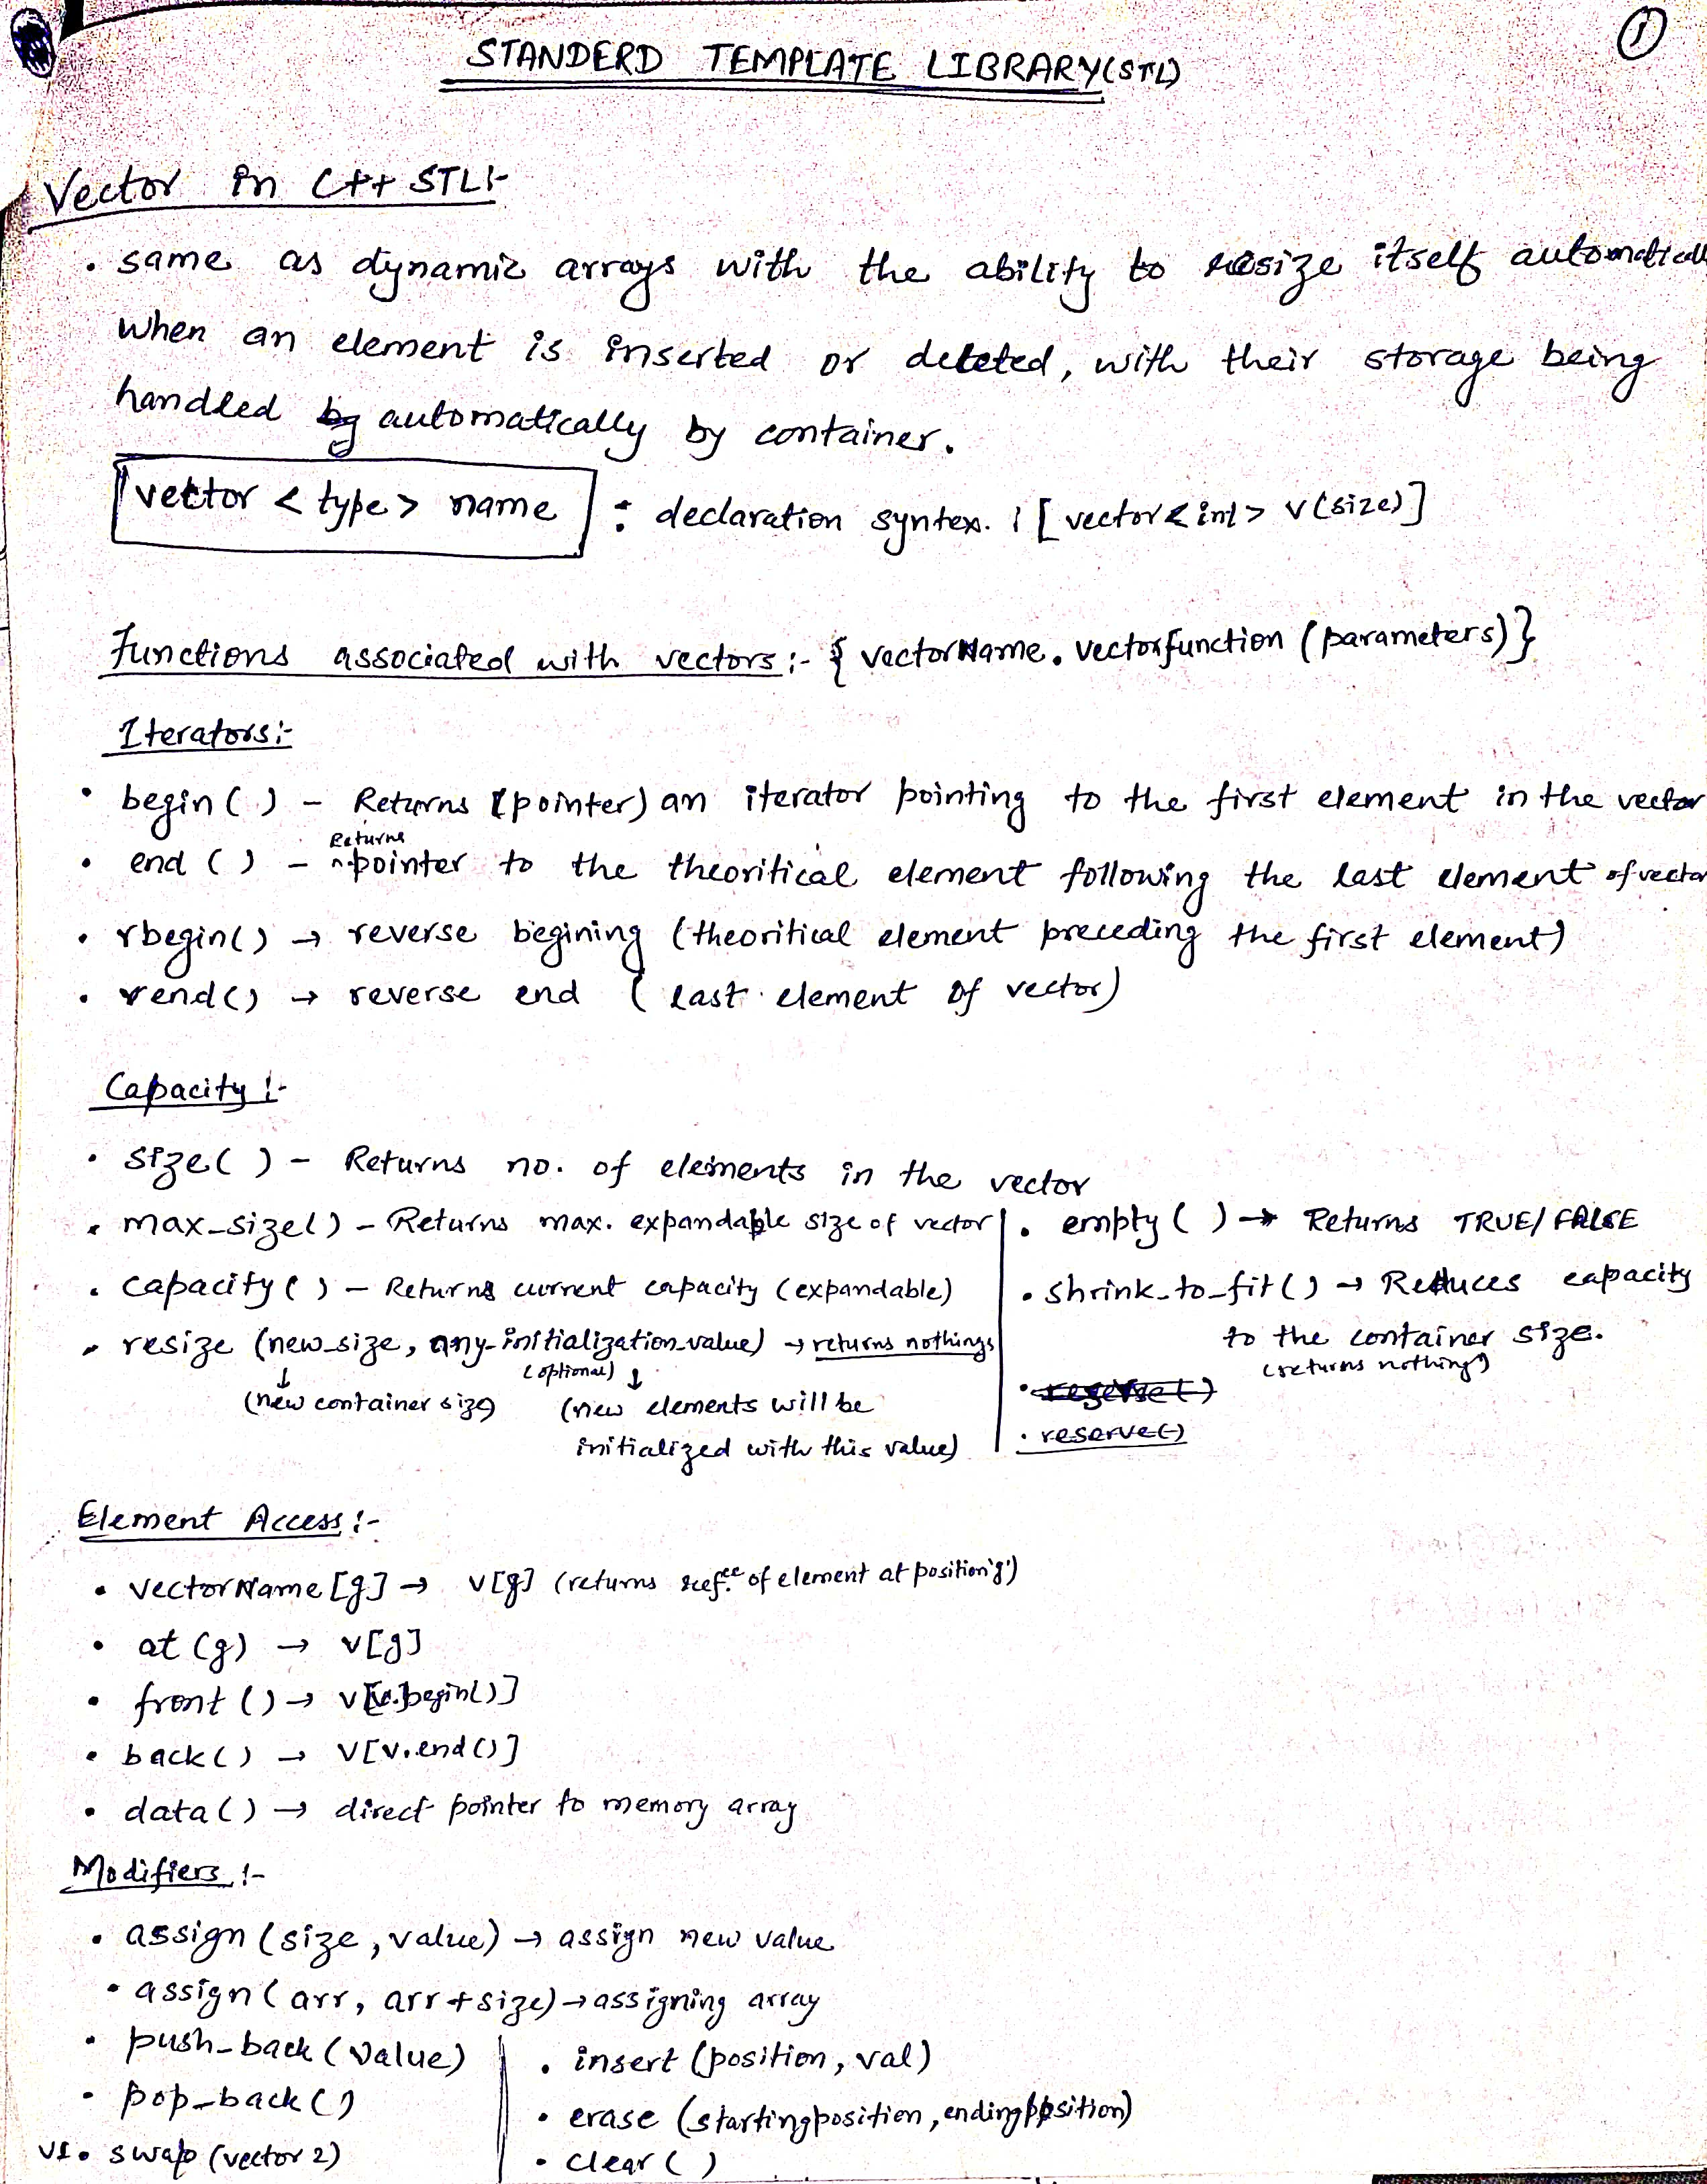 1
STANDERD TEMPLATE LIBRARY(STL)
Vector in C++ STL:-
• same as dynamic arrays with the ability to resize itself automatically
when an element is inserted or deleted, with their storage being
handled by automatically by container.
vector < type > name : declaration syntex. | [vector<int> v(size)]
Functions associated with vectors :- { vectorName. vectorfunction (parameters)}
Iterators:-
• begin ( ) - Returns (pointer) an iterator pointing to the first element in the vector
Returns
• end ( ) - ^pointer to the theoritical element following the last element of vector
• rbegin() → reverse begining (theoritical element preceding the first element)
• rend() → reverse end ( last element of vector)
Capacity :-
• size( ) - Returns no. of elements in the vector
• max_size() - Returns max. expandable size of vector
• capacity ( ) - Returns current capacity (expandable)
• resize (new_size, any-initialization_value) → returns nothings
(optional)
↓ ↓
(new container size) (new elements will be
initialized with this value)
• empty ( ) → Returns TRUE/ FALSE
• shrink_to_fit() → Reduces capacity
to the container size.
(returns nothing)
• reserve()
Element Access :-
• vectorName [g] → v[g] (returns refce. of element at position 'g')
• at (g) → v[g]
• front () → v[v.begin()]
• back() → v[v.end()]
• data() → direct pointer to memory array
Modifiers :-
• assign (size, value) → assign new value
• assign ( arr, arr + size) → assigning array
• push_back (value)
• pop_back ()
v1. swap (vector 2)
• insert (position, val)
• erase (startingposition, endingposition)
• clear ( )